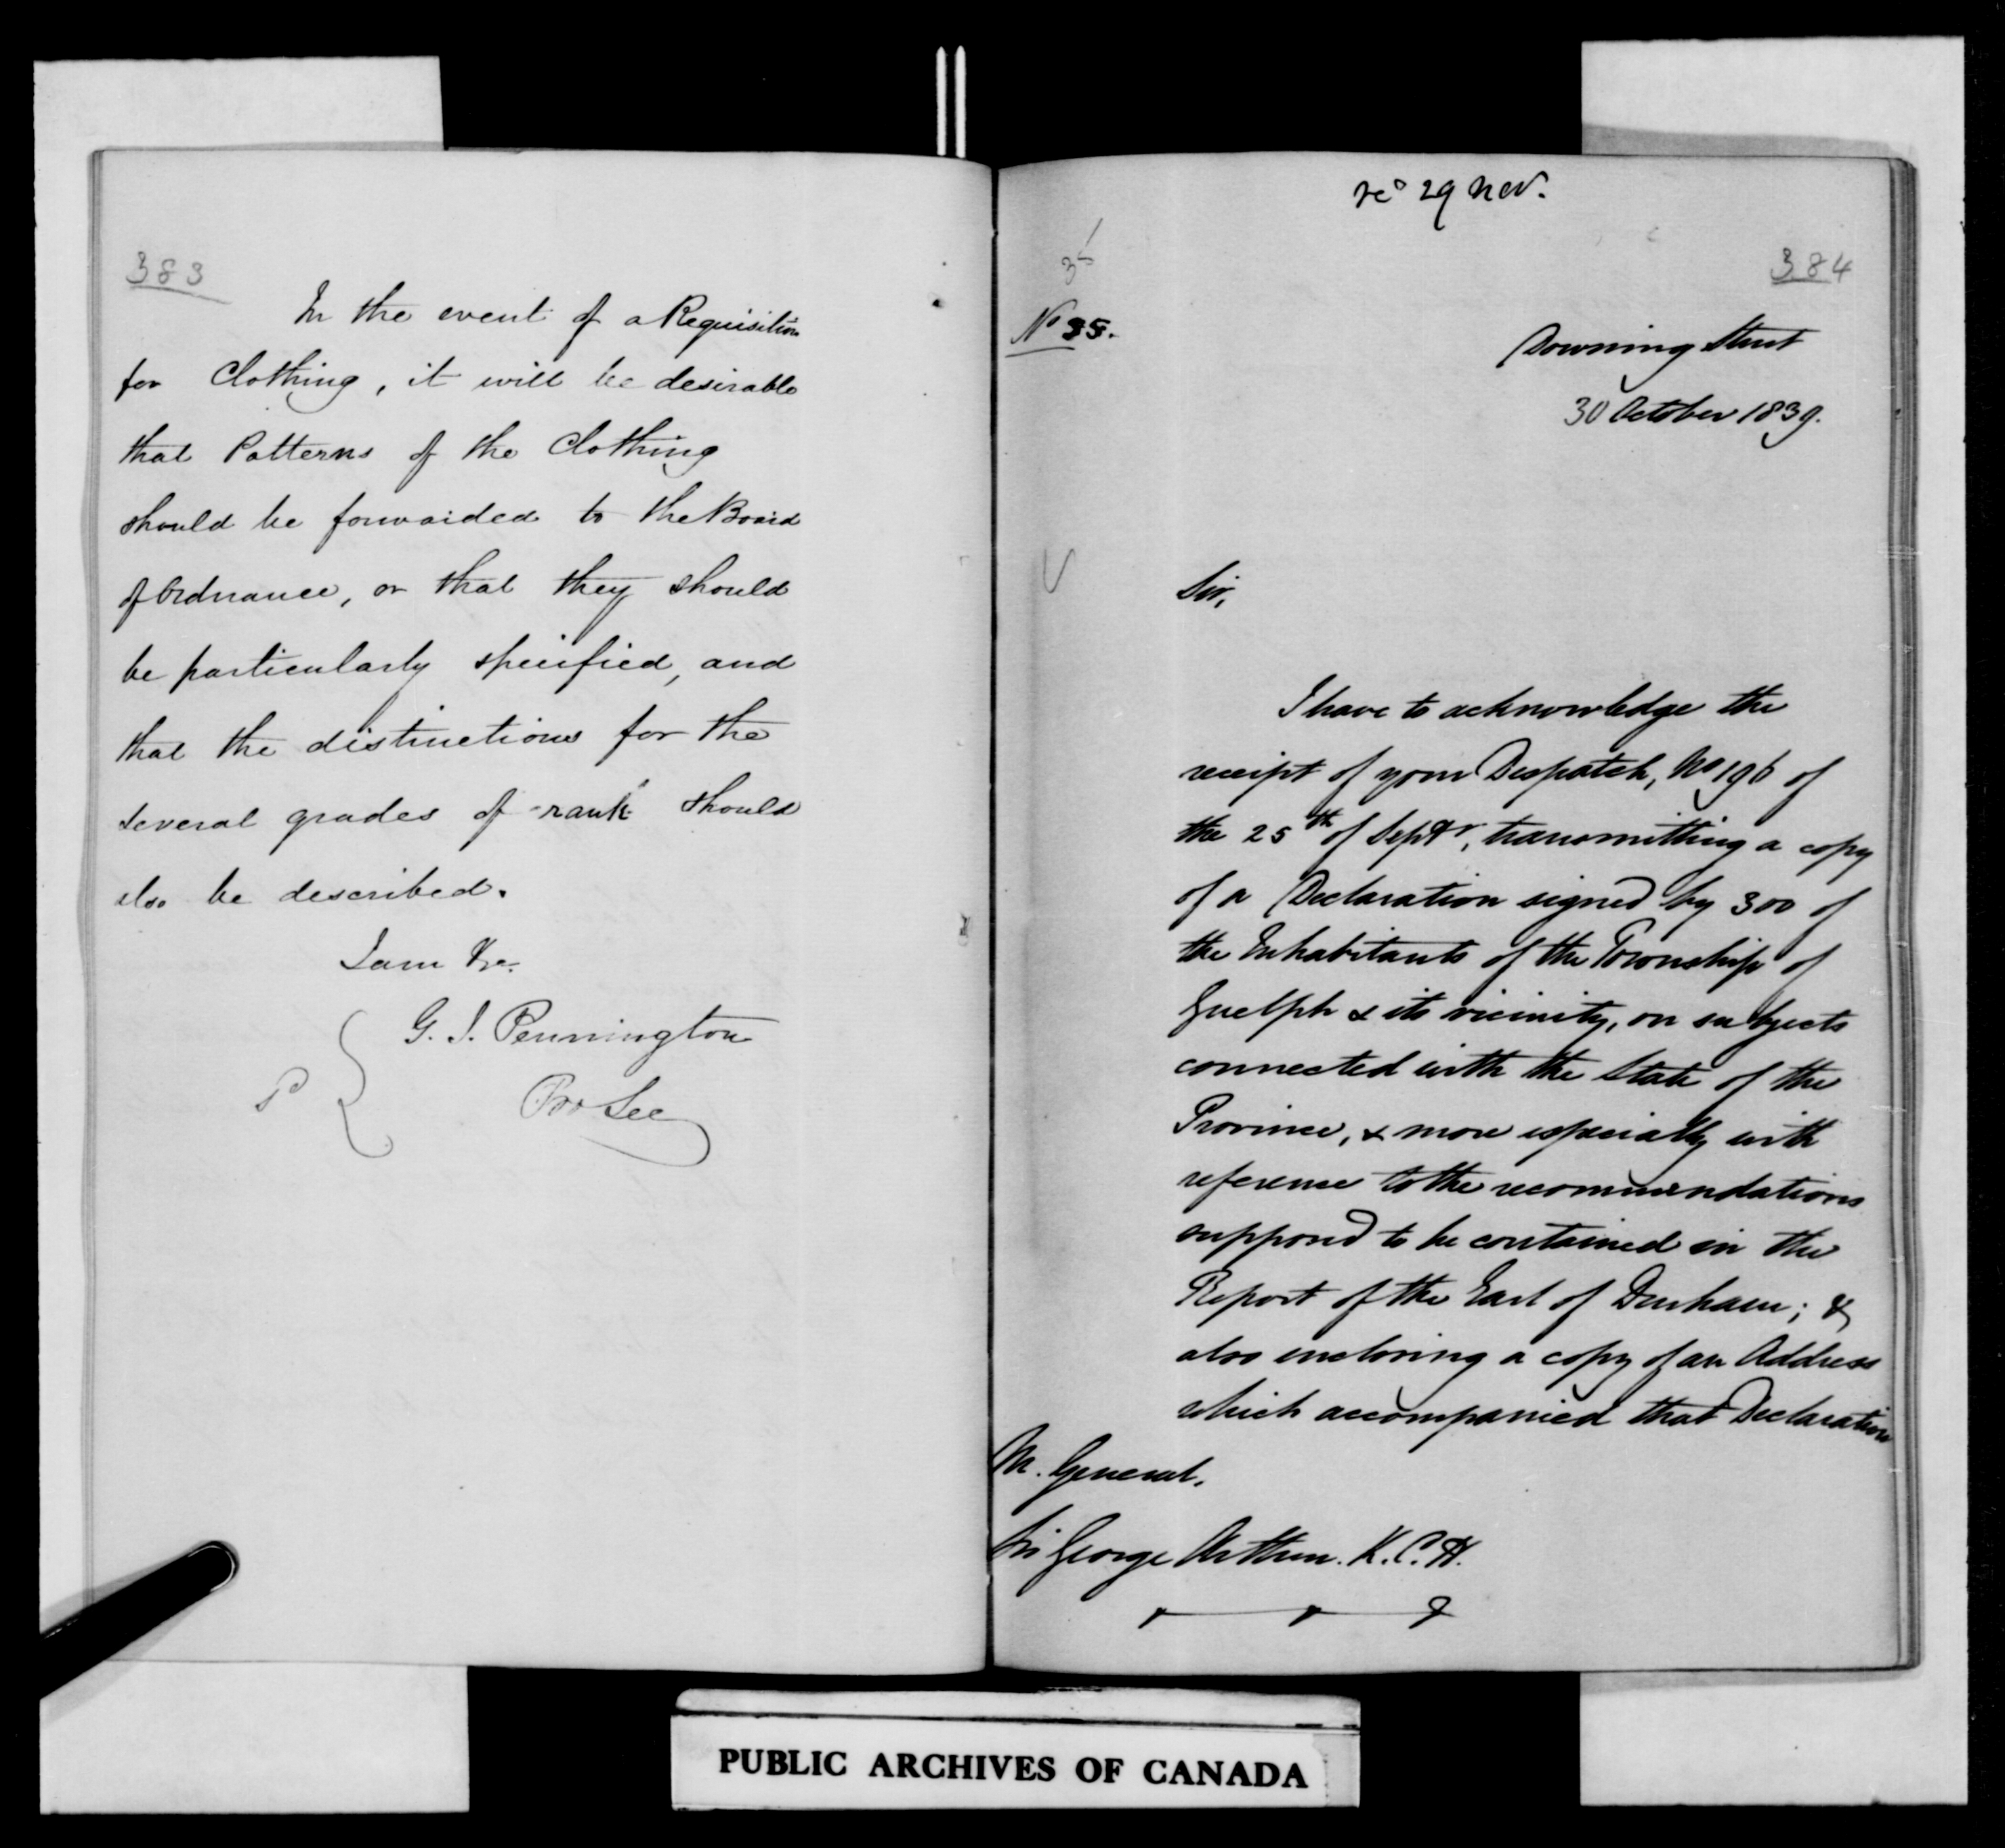 383
In the event of a Requisition
for Clothing, it will be desirable
that Patterns of the Clothing
should be forwarded to the Board
of Ordnance, or that they should
be particularly specified, and
that the distinctions for the
several grades of rank should
also be described.
I am &c.
G. J. Pennington
P
Pro Sec
recd 29 Nov.
35
384
No 35.
Downing Street
30 October 1839.
Sir,
I have to acknowledge the
receipt of your Despatch, No 196 of
the 25th of Septr, transmitting a copy
of a Declaration signed by 300 of
the Inhabitants of the Township of
Guelph & its vicinity, on subjects
connected with the State of the
Province, & more especially with
reference to the recommendations
supposed to be contained in the
Report of the Earl of Durham; &
also enclosing a copy of an Address
which accompanied that Declaration
M. General,
Sir George Arthur. K.C.H.
PUBLIC ARCHIVES OF CANADA